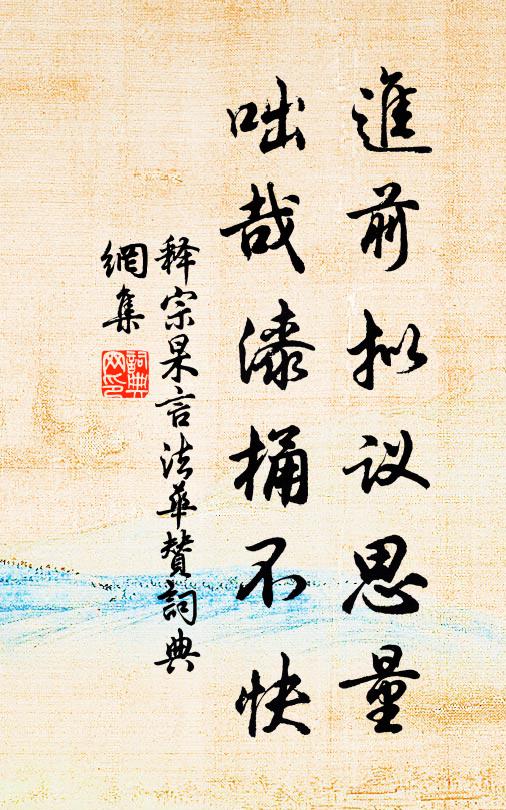 進前拟议思量
咄哉漆桶不快
释宗杲言法華赞詞典
網集
詞典
网印